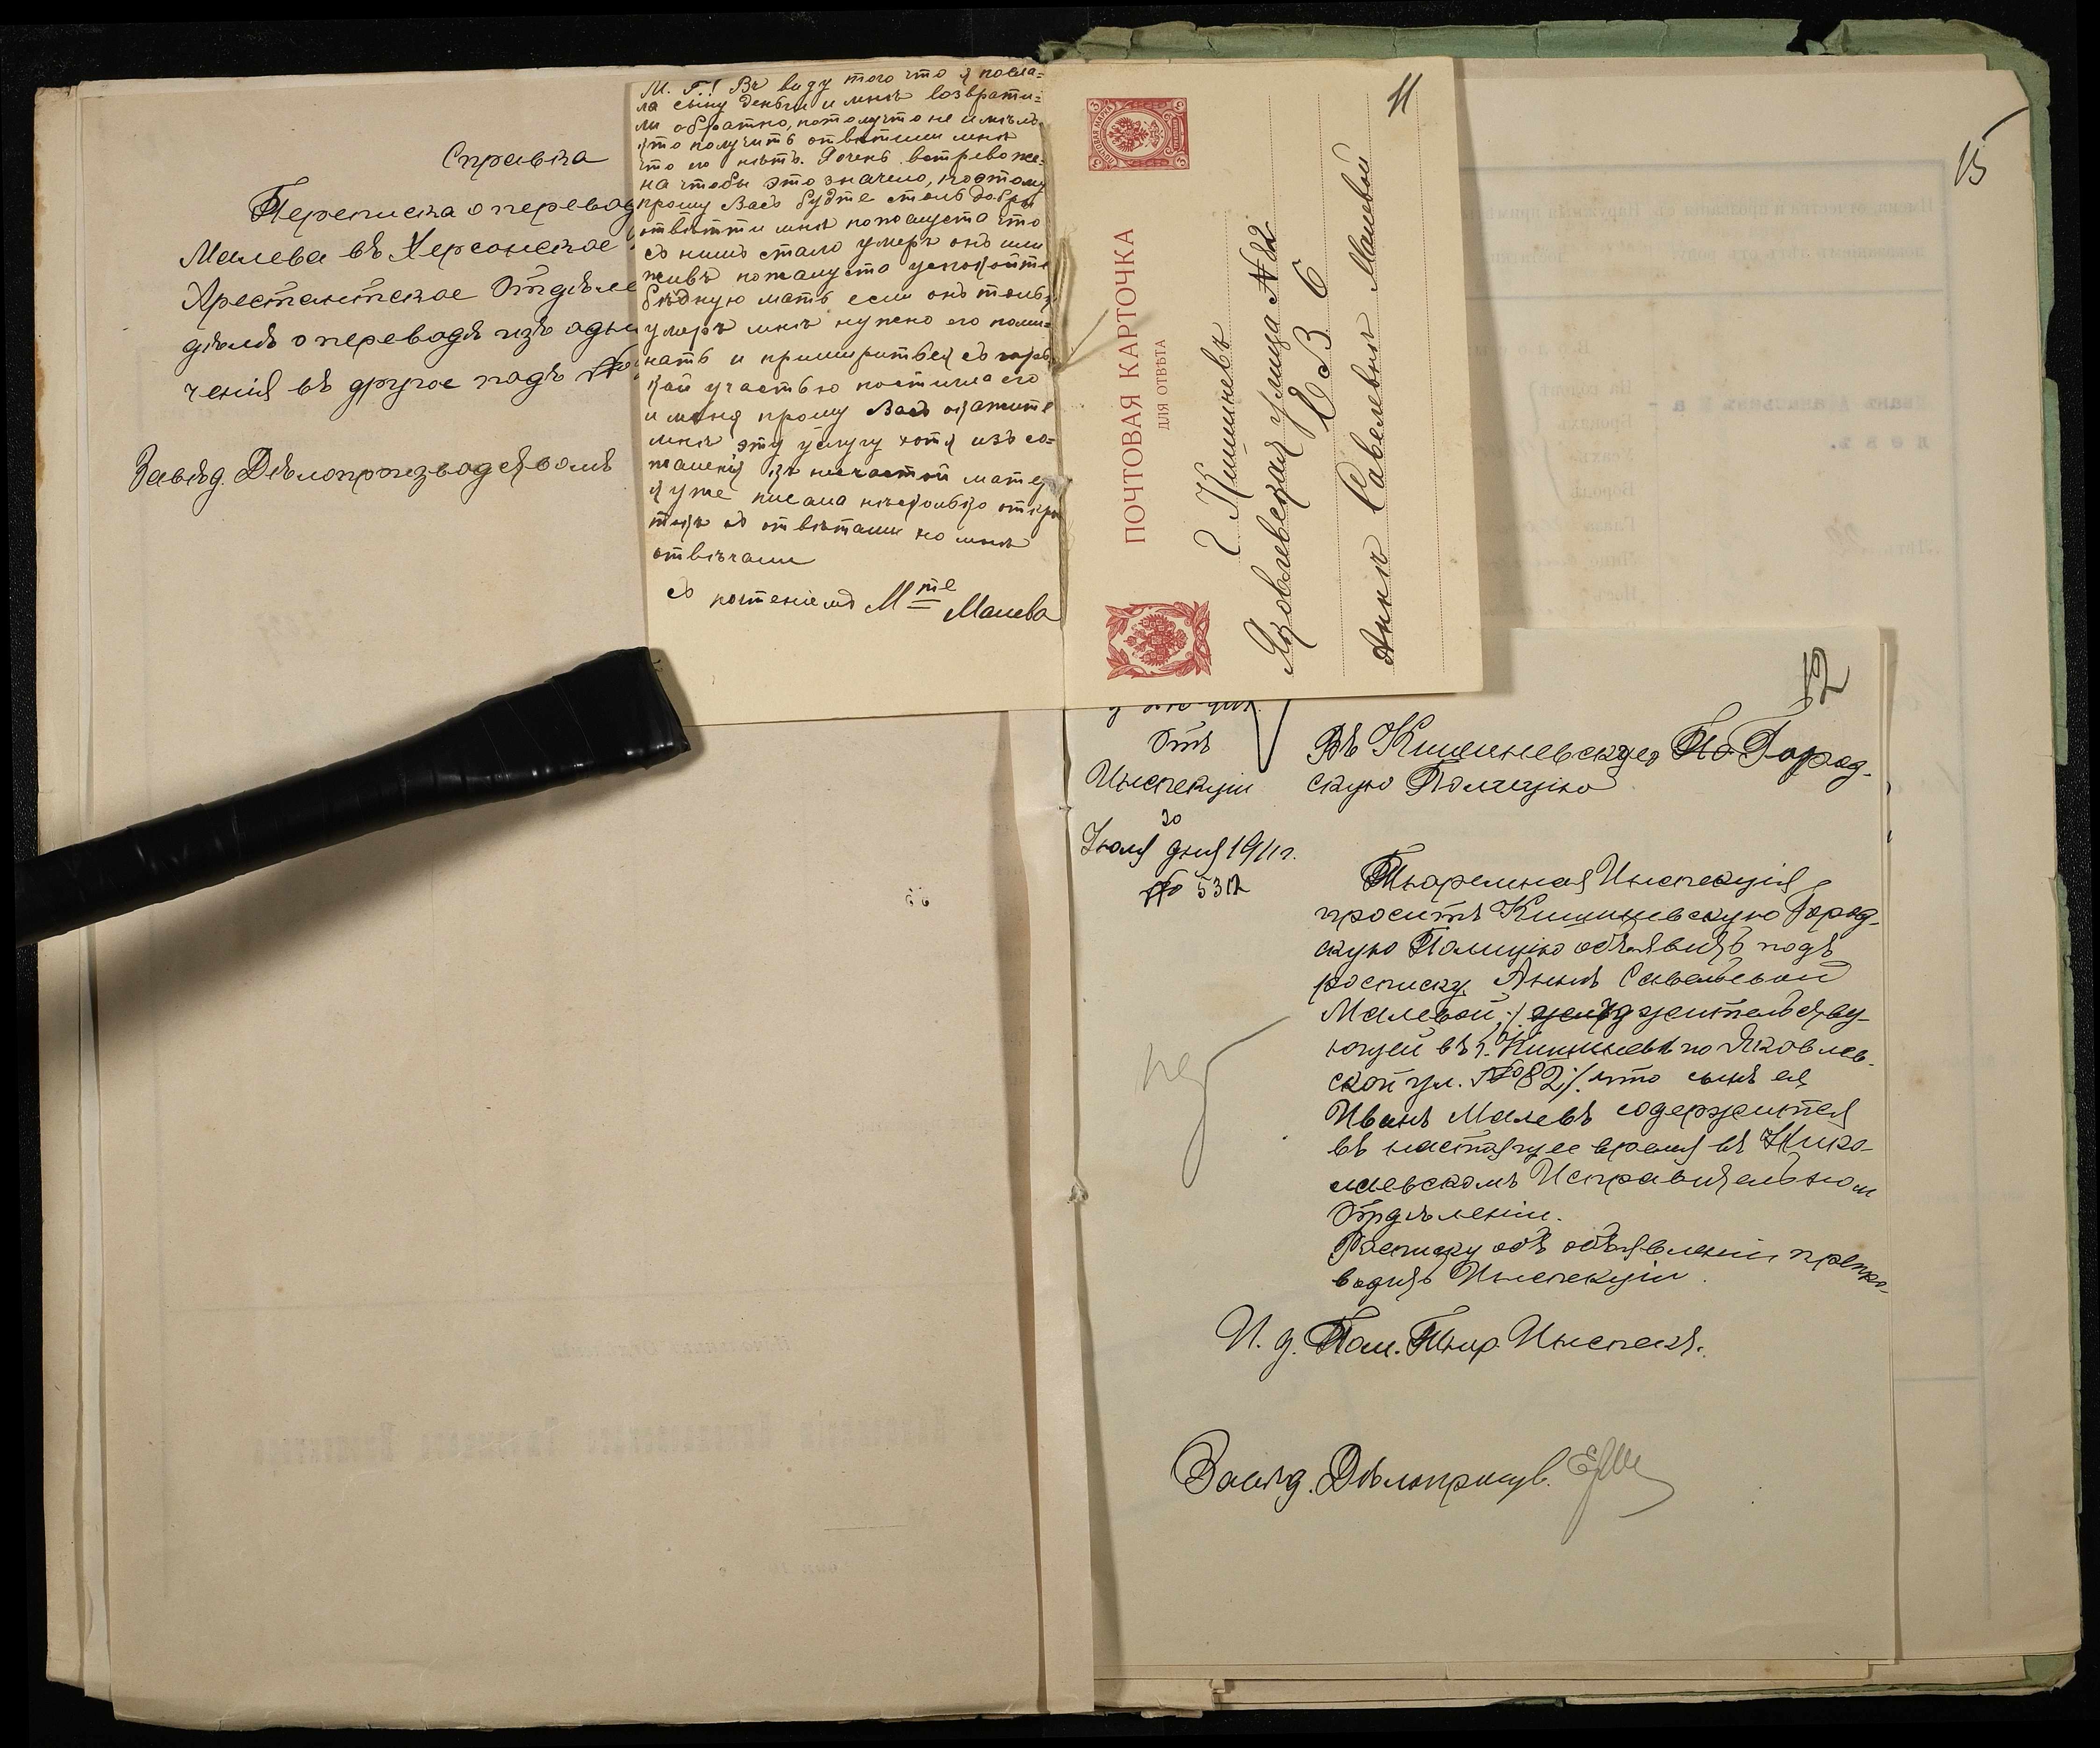 Справка
Переписка о перевод
Малева въ Херсонское
Арестантское Отдѣле
дѣлѣ о переводѣ изъ одн
ченія въ другое подъ №
Завѣд. Дѣлопроизводствомъ
М. Г.! Въ виду того что я посла=
ла сыну деньги и мнѣ возврати=
ли обратно, потомучто не имѣлъ
кто получить отвѣтили мнѣ
что его нѣтъ. Я очень встревоже=
на чтобы это значело, поэтому
прошу Васъ будте столь добры
отвѣтти мнѣ пожалуста что
съ нимъ стало умеръ онъ или
живъ пожалуста успокойте
бѣдную мать если онъ только
умеръ мнѣ нужно его поми=
нать и примиритьея съ горь
кой участью постигла его
и меня прошу Васъ окажите
мнѣ эту услугу хотя изъ со=
жаления къ несчастной матери
я уже писала нѣсколько откры
токъ съ отвѣтами но мнѣ
отвѣчали
съ почтеніемъ Mme Малева
11
ПОЧТОВАЯ КАРТОЧКА
ДЛЯ ОТВѢТА
Г. Кишиневъ
Яковлевская Улица № 82
Е В Б
Аннѣ Савелевнѣ Малевой
15
12
Отъ
Инспекціи
30
Іюля дня 1911 г.
№ 5312
Въ Кишиневскую По Город-
скую Полицію
Тюремная Инспекція
проситъ Кишиневскую Город-
скую Полицію объявить подъ
росписку Аннѣ Савельевой
Малевой, /. жительству-
ющей въ г. Кишиневѣ по Яковлев-
ской ул. № 82 ./. что сынъ ея
Иванъ Малевъ содержится
въ настоящее время въ Нико-
лаевскомъ Исправительном
Отдѣленіи.
Росписку объ объявленіи препро-
водить Инспекціи.
И. д. Пом. Тюр. Инспект.
Завѣд. Дѣлопроизв.